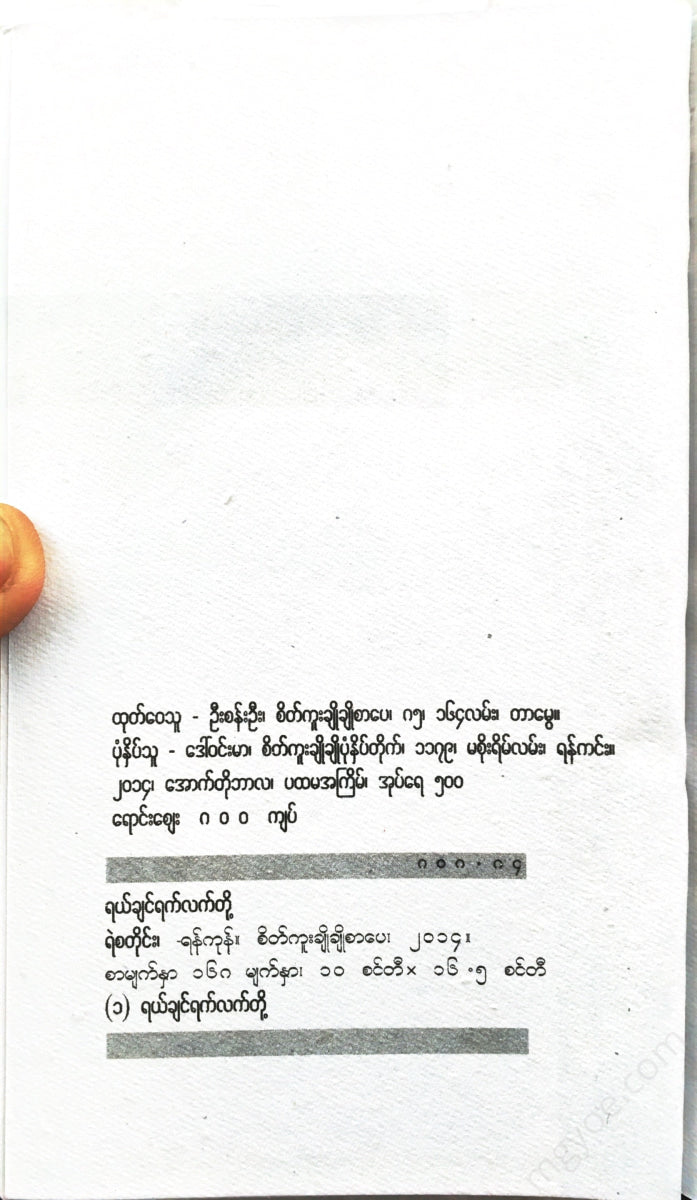 ထုတ်ဝေသူ - ဦးစန်းဦး၊ စိတ်ကူးချိုချိုစာပေ၊ ဂ၅၊ ၁၆၄လမ်း၊ တာမွေ။
ပုံနှိပ်သူ - ဒေါ်ဝင်းမာ၊ စိတ်ကူးချိုချိုပုံနှိပ်တိုက်၊ ၁၁၇၉၊ မစိုးရိမ်လမ်း၊ ရန်ကင်း။
၂၀၁၄၊ အောက်တိုဘာလ၊ ပထမအကြိမ်၊ အုပ်ရေ ၅၀၀
ရောင်းဈေး ဂ ၀ ၀ ကျပ်
ဂ ၀ ဂ . ၉ ၄
ရယ်ချင်ရက်လက်တို့
ရဲစတိုင်း၊ -ရန်ကုန်။ စိတ်ကူးချိုချိုစာပေ၊ ၂၀၁၄။
စာမျက်နှာ ၁၆ဂ မျက်နှာ၊ ၁၀ စင်တီ× ၁၆ .၅ စင်တီ
(၁) ရယ်ချင်ရက်လက်တို့
mgyoe.com